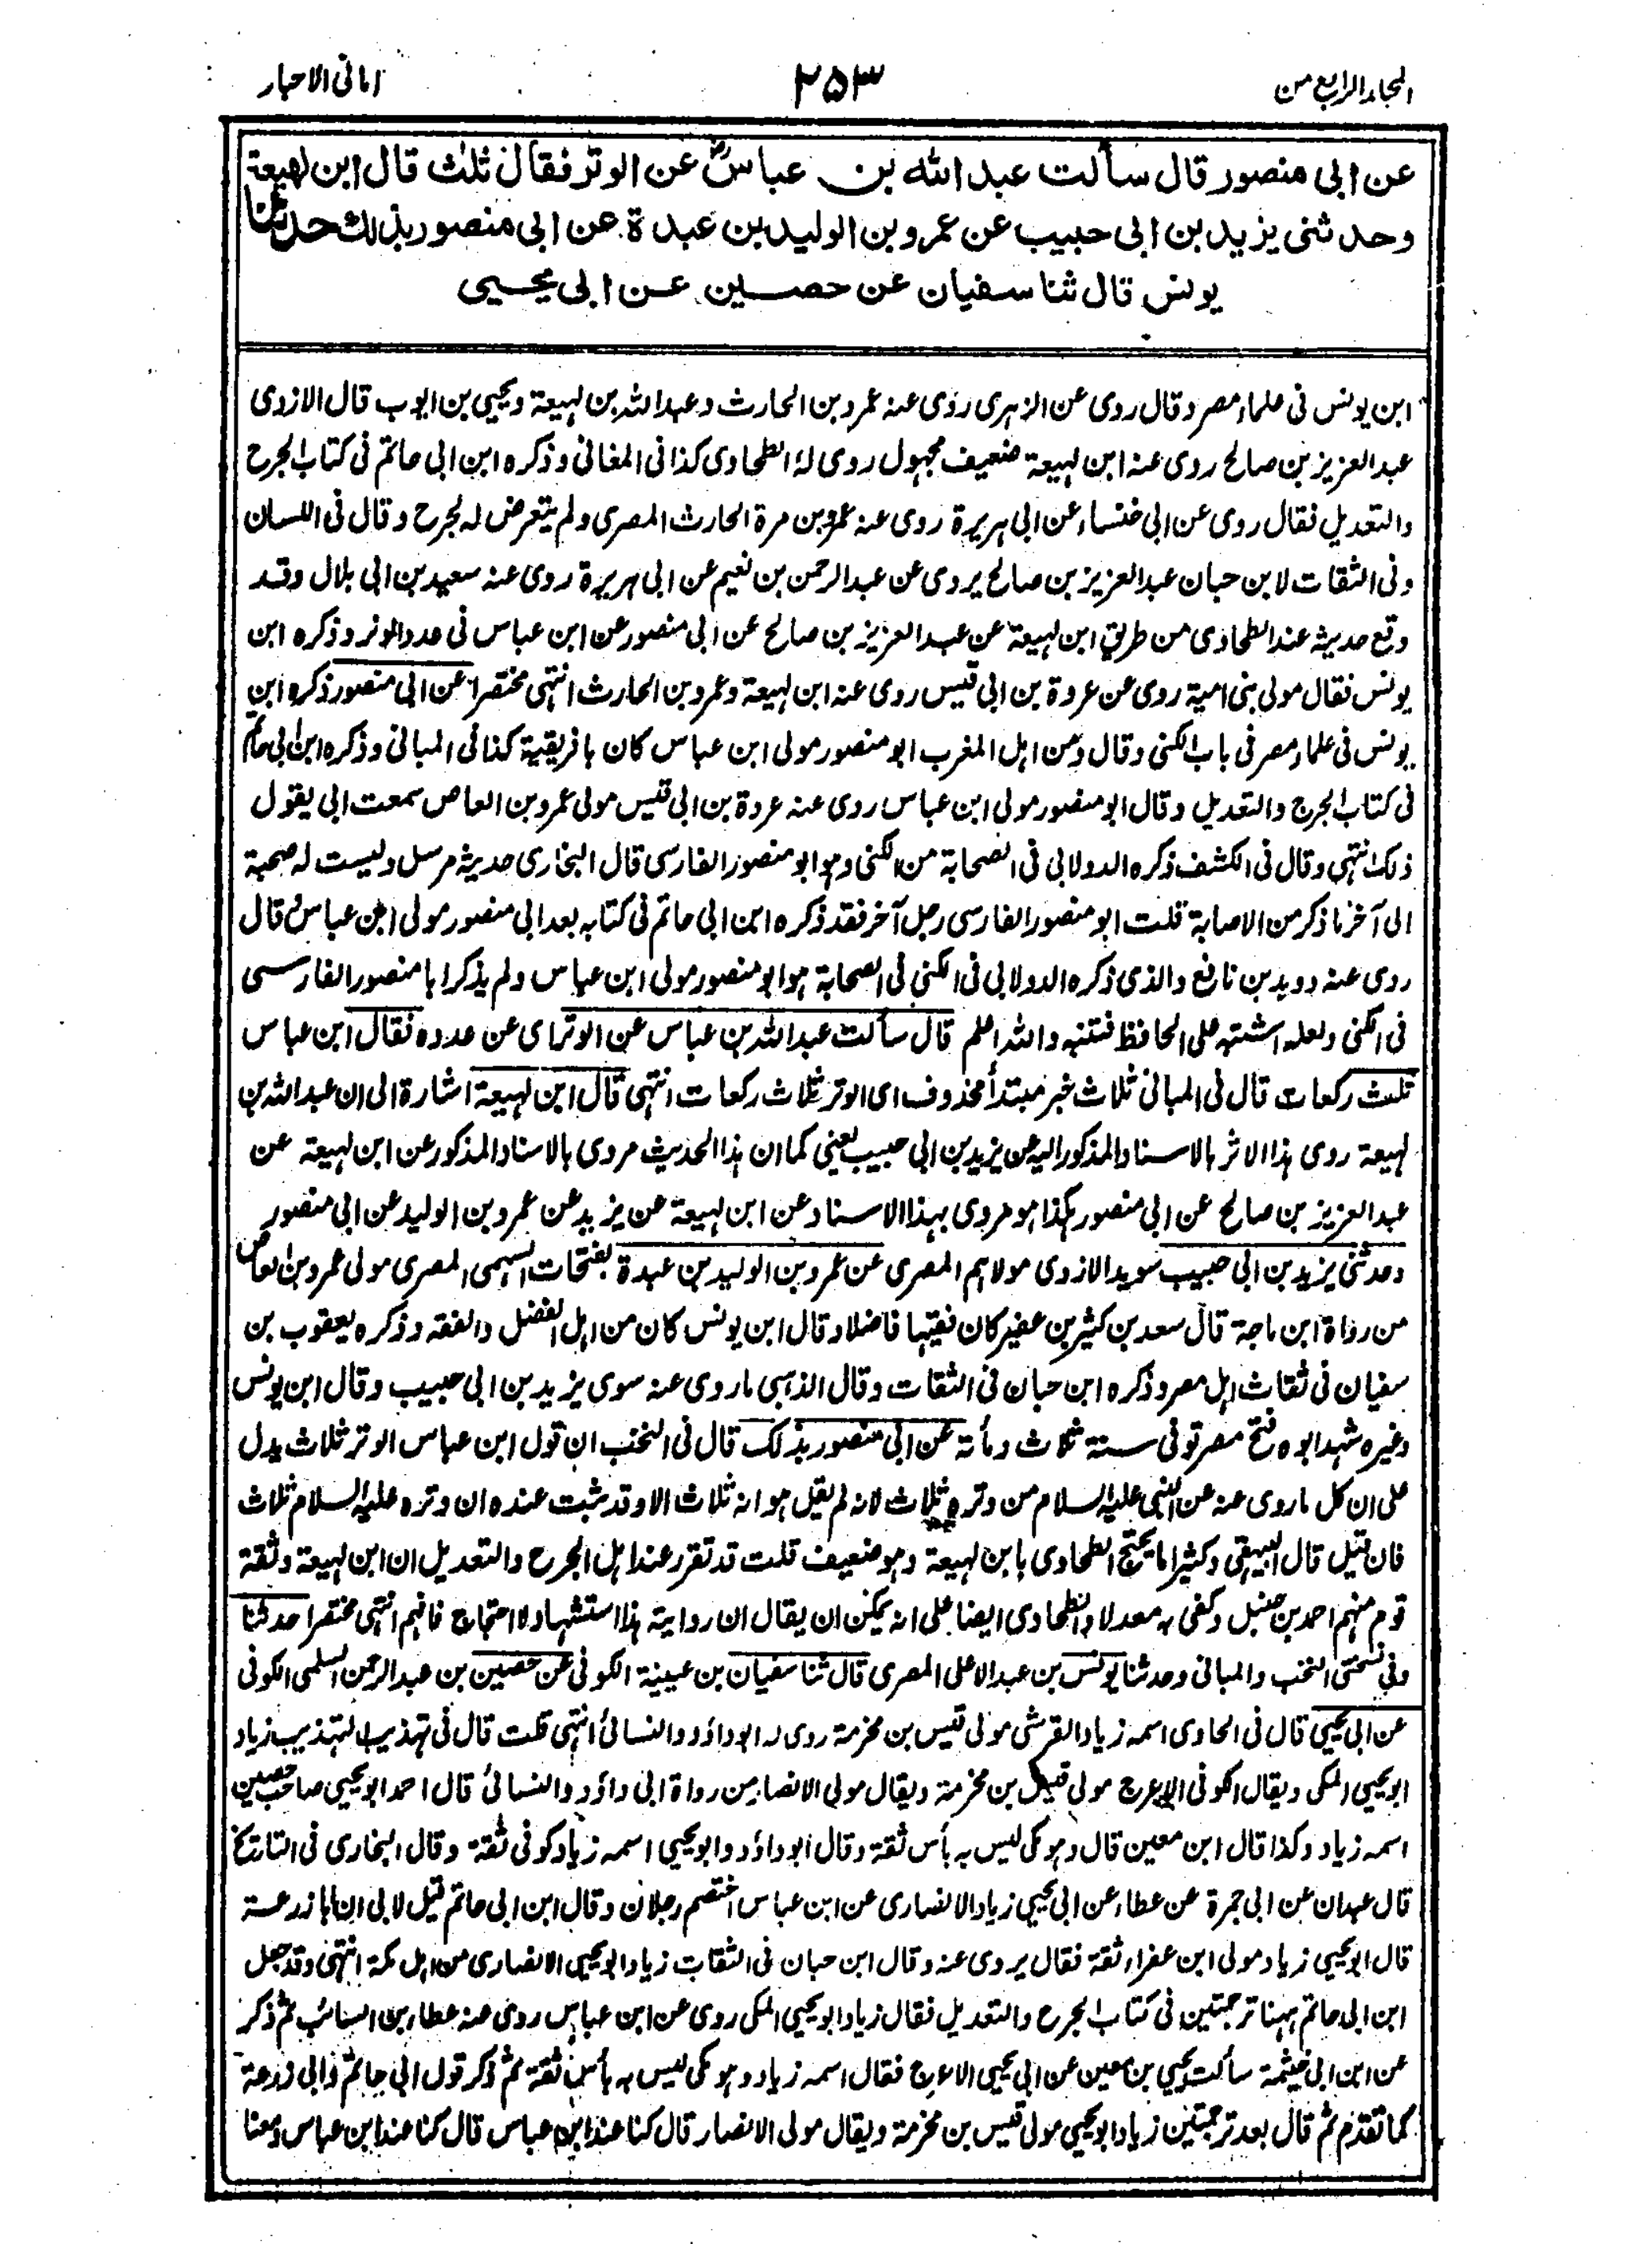 المجلد الرابع من
٢٥٣
امانی الاحبار
عن ابی منصور قال سألت عبد الله بن عباس عن الوتر فقال ثلث قال ابن لهیعة
وحدثنی یزید بن ابی حبیب عن عمرو بن الولید بن عبدة عن ابی منصور بذلك حدثنا
یونس قال ثنا سفیان عن حصین عن ابی یحیی
ابن یونس فی علماء مصر وقال روی عن الزہری روی عنہ عمرو بن الحارث وعبداللہ بن لہیعة ویحیی بن ایوب قال الازدی
عبدالعزیز بن صالح روی عنہ ابن لہیعة ضعیف مجہول روی لہ الطحاوی کذا فی المغانی وذکرہ ابن ابی حاتم فی کتاب الجرح
والتعدیل فقال روی عن ابی خنساء عن ابی ہریرة روی عنہ عمرو بن مرة الحارث المصری ولم یتعرض لہ لجرح وقال فی اللسان
وفی الثقات لابن حبان عبدالعزیز بن صالح یروی عن عبدالرحمن بن نعیم عن ابی ہریرة روی عنہ سعید بن ابی ہلال وقد
وقع حدیثہ عند الطحاوی من طریق ابن لہیعة عن عبدالعزیز بن صالح عن ابی منصور عن ابن عباس فی عدد الوتر وذکرہ ابن
یونس فقال مولی بنی امیة روی عن عروة بن ابی قیس روی عنہ ابن لہیعة وعمرو بن الحارث انتہی مختصرا عن ابی منصور ذکرہ ابن
یونس فی علماء مصر فی باب الکنی وقال ومن اہل المغرب ابو منصور مولی ابن عباس کان بافریقیة کذا فی المبانی وذکرہ ابن ابی حاتم
فی کتاب الجرح والتعدیل وقال ابو منصور مولی ابن عباس روی عنہ عروة بن ابی قیس مولی عمرو بن العاص سمعت ابی یقول
ذلک انتہی وقال فی الکشف ذکرہ الدولابی فی الصحابة من الکنی وہو ابو منصور الفارسی قال البخاری حدیثہ مرسل ولیست لہ صحبة
الی آخر ما ذکر من الاصابة قلت ابو منصور الفارسی رجل آخر فقد ذکرہ ابن ابی حاتم فی کتابہ بعد ابی منصور مولی ابن عباس قال
روی عنہ دوید بن نافع والذی ذکرہ الدولابی فی الکنی فی الصحابة ہو ابو منصور مولی ابن عباس ولم یذکر ابا منصور الفارسی
فی الکنی ولعلہ اشتبہ علی الحافظ فتنبہ واللہ اعلم قال سألت عبداللہ بن عباس عن الوتر ای عن عددہ فقال ابن عباس
ثلث رکعات قال فی المبانی ثلاث خبر مبتدأ محذوف ای الوتر ثلاث رکعات انتہی قال ابن لہیعة اشارة الی ان عبداللہ بن
لہیعة روی ہذا الاثر بالاسناد المذکور الیہ عن یزید بن ابی حبیب یعنی کما ان ہذا الحدیث مروی بالاسناد المذکور عن ابن لہیعة عن
عبدالعزیز بن صالح عن ابی منصور ہکذا ہو مروی بہذا الاسناد عن ابن لہیعة عن یزید عن عمرو بن الولید عن ابی منصور
وحدثنی یزید بن ابی حبیب سوید الازدی مولاہم المصری عن عمرو بن الولید بن عبدة بفتحات السہمی المصری مولی عمرو بن العاص
من رواة ابن ماجة قال سعد بن کثیر بن عفیر کان فقیہا فاضلا وقال ابن یونس کان من اہل الفضل والفقہ وذکرہ یعقوب بن
سفیان فی ثقات اہل مصر وذکرہ ابن حبان فی الثقات وقال الذہبی ما روی عنہ سوی یزید بن ابی حبیب وقال ابن یونس
وغیرہ شہد ابوہ فتح مصر توفی سنة ثلاث ومأة عن ابی منصور بذلک قال فی النخب ان قول ابن عباس الوتر ثلاث یدل
علی ان کل ما روی عنہ عن النبی علیہ السلام من وترہ ثلاث لانہ لم یقل ہو انہ ثلاث الا وقد ثبت عندہ ان وترہ علیہ السلام ثلاث
فان قیل قال البیہقی وکثیرا ما یحتج الطحاوی بابن لہیعة وہو ضعیف قلت قد تقرر عند اہل الجرح والتعدیل ان ابن لہیعة وثقة
قوم منہم احمد بن حنبل وکفی بہ معدلا والطحاوی ایضا علی انہ یمکن ان یقال ان روایتہ ہذا استشہاد لا احتجاج فافہم انتہی مختصرا حدثنا
وفی نسختی النخب والمبانی وحدثنا یونس بن عبدالاعلی المصری قال ثنا سفیان بن عیینة الکوفی عن حصین بن عبدالرحمن السلمی الکوفی
عن ابی یحیی قال فی الحاوی اسمہ زیاد القرشی مولی قیس بن مخرمة روی لہ ابو داؤد والنسائی انتہی قلت قال فی تہذیب التہذیب زیاد
ابو یحیی المکی ویقال الکوفی الاعرج مولی قیس بن مخرمة ویقال مولی الانصار من رواة ابی داؤد والنسائی قال احمد ابو یحیی صاحب حصین
اسمہ زیاد وکذا قال ابن معین قال وہو مکی لیس بہ بأس ثقة وقال ابو داؤد وابو یحیی اسمہ زیاد کوفی ثقة وقال البخاری فی التاریخ
قال عبدان عن ابی حمزة عن عطاء عن ابی یحیی زیاد الانصاری عن ابن عباس اختصم رجلان وقال ابن ابی حاتم قیل لابی ان ابا زرعة
قال ابو یحیی زیاد مولی ابن عفراء ثقة فقال یروی عنہ وقال ابن حبان فی الثقات زیاد ابو یحیی الانصاری من اہل مکة انتہی وقد جعل
ابن ابی حاتم ہہنا ترجمتین فی کتاب الجرح والتعدیل فقال زیاد ابو یحیی المکی روی عن ابن عباس روی عنہ عطاء بن السائب ثم ذکر
عن ابن ابی خیثمة سألت یحیی بن معین عن ابی یحیی الاعرج فقال اسمہ زیاد وہو مکی لیس بہ بأس ثقة ثم ذکر قول ابی حاتم وابی زرعة
کما تقدم ثم قال بعد ترجمتین زیاد ابو یحیی مولی قیس بن مخرمة ویقال مولی الانصار قال کنا عند ابن عباس قال کنا عند ابن عباس ومعنا